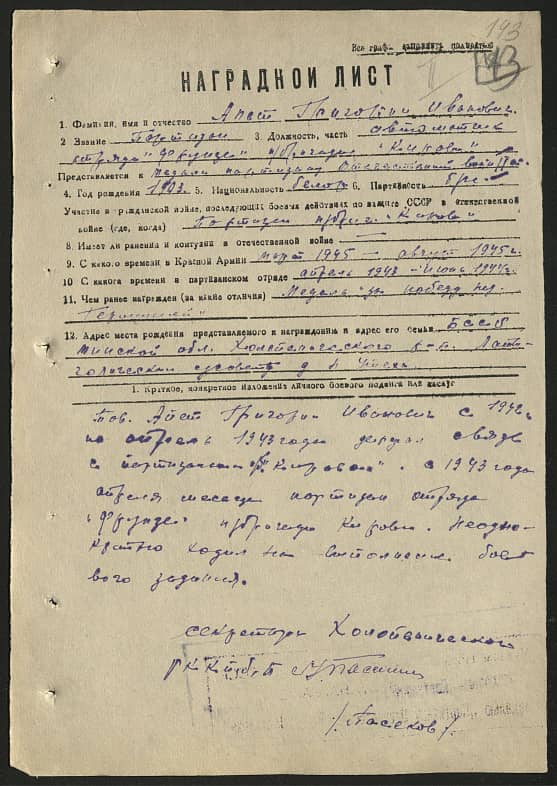 193
Все графы заполнять полностью
193
НАГРАДНОЙ ЛИСТ
1. Фамилия, имя и отчество Апет Григорий Иванович.
2 Звание Партизан 3. Должность, часть автоматчик
отряда "Фрунзе" п/бригады "Кирова"
Представляется к медали партизану Отечественной войны II ст.
4. Год рождения 1923. 5. Национальность белор 6. Партийность
Участие в гражданской войне, последующих боевых действиях по защите СССР и отечественной
войне (где, когда) Партизан п/бриг. Кирова
8. Имеет ли ранения и контузии в отечественной войне —
9. С какого времени в Красной Армии март 1945 — август 1945 г.
10 С какого времени в партизанском отряде апрель 1943 - июнь 1944 г.
11. Чем ранее награжден (за какие отличия) Медаль "за победу над
Германией"
12. Адрес места рождения представляемого к награждению и адрес его семьи БССР
Минской обл. Холопеничского р-н.
сельсовет д
1. Краткое, конкретное изложение личного боевого подвига или заслуг
Тов. Апет Григорий Иванович с 1942 г
по апрель 1943 года держал связь
с партизанами бр. "Кирова". с 1943 года
апреля месяца партизан отряда
"Фрунзе" п/бригады Кирова. Неодно-
кратно ходил на выполнение бое-
вого задания.
секретарь Холопеничского
РК КП(б)Б
/Пасеков/.